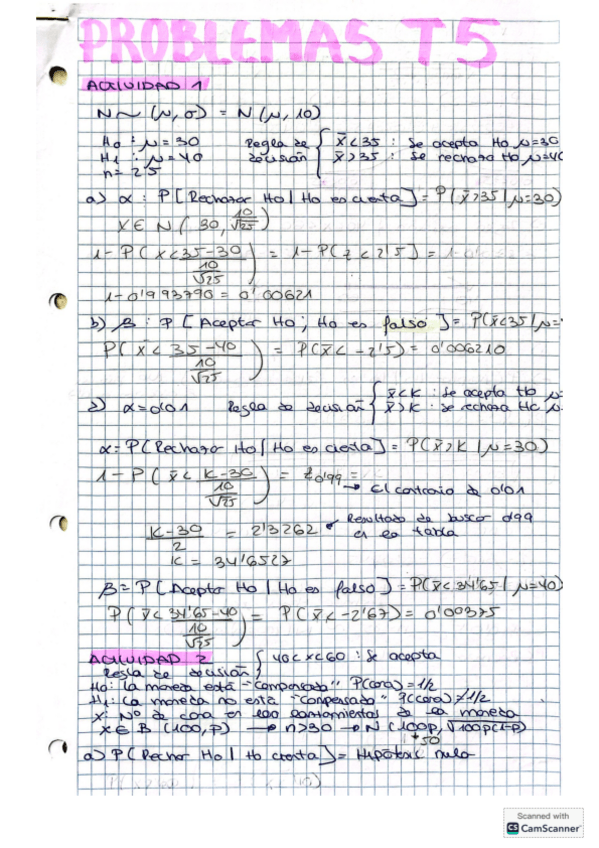 PROBLEMAS T5
ACTIVIDAD 1
N ~ (μ, σ) = N(μ, 10)
H₀ : μ = 30
H₁ : μ = 40
n = 25
Regla de decisión { x̄ < 35 : Se acepta H₀ μ=30
x̄ > 35 : Se rechaza H₀ μ=40
a) α : P[Rechazar H₀ | H₀ es cierta] = P(x̄ > 35 | μ=30)
X ∈ N(30, 10/√25)
1 - P(x < 35-30 / 10/√25) = 1 - P(z < 2'5) =
1 - 0'993790 = 0'00621
b) β : P[Aceptar H₀ ; H₀ es falso] = P(x̄ < 35 | μ=
P(x̄ < 35-40 / 10/√25) = P(x̄ < -2'5) = 0'006210
2) α = 0'01 Regla de decisión { x̄ < K : Se acepta H₀ μ=
x̄ > K : Se rechaza H₀ μ=
α = P[Rechazo H₀ | H₀ es cierta] = P(x̄ > K | μ=30)
1 - P(x̄ < K-30 / 10/√25) = z₀'₉₉ =
→ El contrario de 0'01
K-30 / 2 = 2'3262 Resultado de buscar 0'99 en la tabla
K = 34'6527
β = P[Acepto H₀ | H₀ es falso] = P(x̄ < 34'65 | μ=40)
P(x̄ < 34'65-40 / 10/√25) = P(x̄ < -2'67) = 0'00375
ACTIVIDAD 2
Regla de decisión { 40 < x < 60 : Se acepta
H₀: La moneda está "compensada" P(cara) = 1/2
H₁: La moneda no está "compensada" P(cara) ≠ 1/2
X: Nº de cara en los lanzamientos de la moneda
X ∈ B(100, p) → n > 30 → N(100p, √100p(1-p))
50
a) P[Rechar H₀ | H₀ cierta] = Hipótesis nula
Scanned with
CS CamScanner